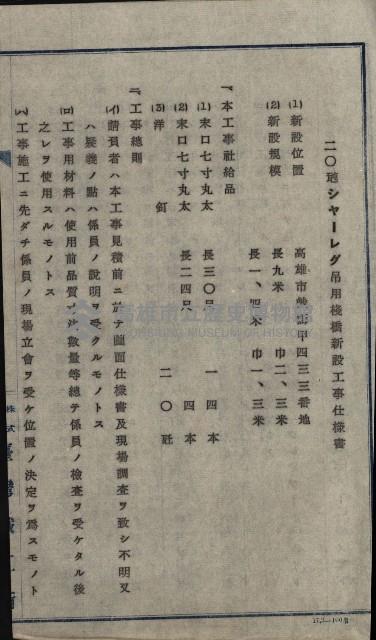 二〇瓲シャーレグ吊用棧橋新設工事仕様書
(1) 新設位置 高雄市 甲四三三番地
(2) 新設規模 長九米 巾二、三米
長一、 米 巾一、三米
一、本工事社給品
(1) 末口七寸丸太 長三〇尺 一四本
(2) 末口七寸丸太 長二四尺 四本
(3) 洋釘 二〇瓩
二、工事總則
(イ) 請負者ハ本工事見積前ニ於テ圖面仕様書及現場調査ヲ致シ不明又
ハ疑義ノ點ハ係員ノ説明ヲ受クルモノトス
(ロ) 工事用材料ハ使用前品質寸法數量等總テ係員ノ檢査ヲ受ケタル後
之レヲ使用スルモノトス
(ハ) 工事施工ニ先ダチ係員ノ現場立會ヲ受ケ位置ノ決定ヲ爲スモノト
株式
臺灣
高雄市立歷史博物館
KAOHSIUNG MUSEUM OF HISTORY